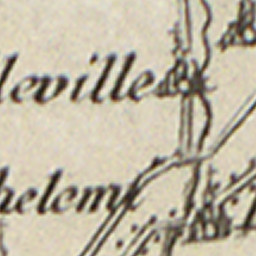 leville
helemy